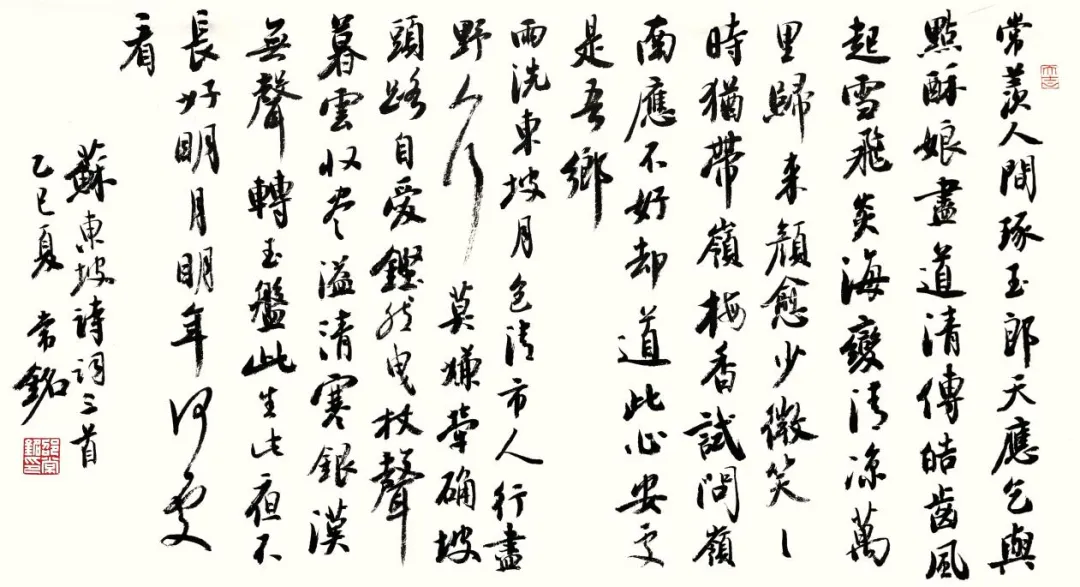 常羨人間琢玉郎天應乞與
點酥娘盡道清傳皓齒風
起雪飛炎海變清凉萬
里歸来顏愈少微笑〻
時猶帶嶺梅香試問嶺
南應不好却道此心安處
是吾鄉
雨洗東坡月色清市人行盡
野人行莫嫌犖确坡
頭路自愛鏗然曳杖聲
暮雲收尽溢清寒銀漢
無聲轉玉盤此生此夜不
長好明月明年何處
看
蘇東坡詩詞三首
乙巳夏 常銘